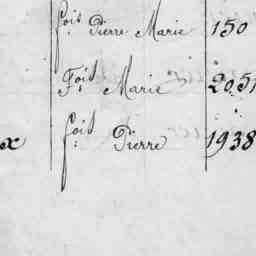 foit Pierre Marie 150
Foit Marie 2051
x foit Pierre 1938